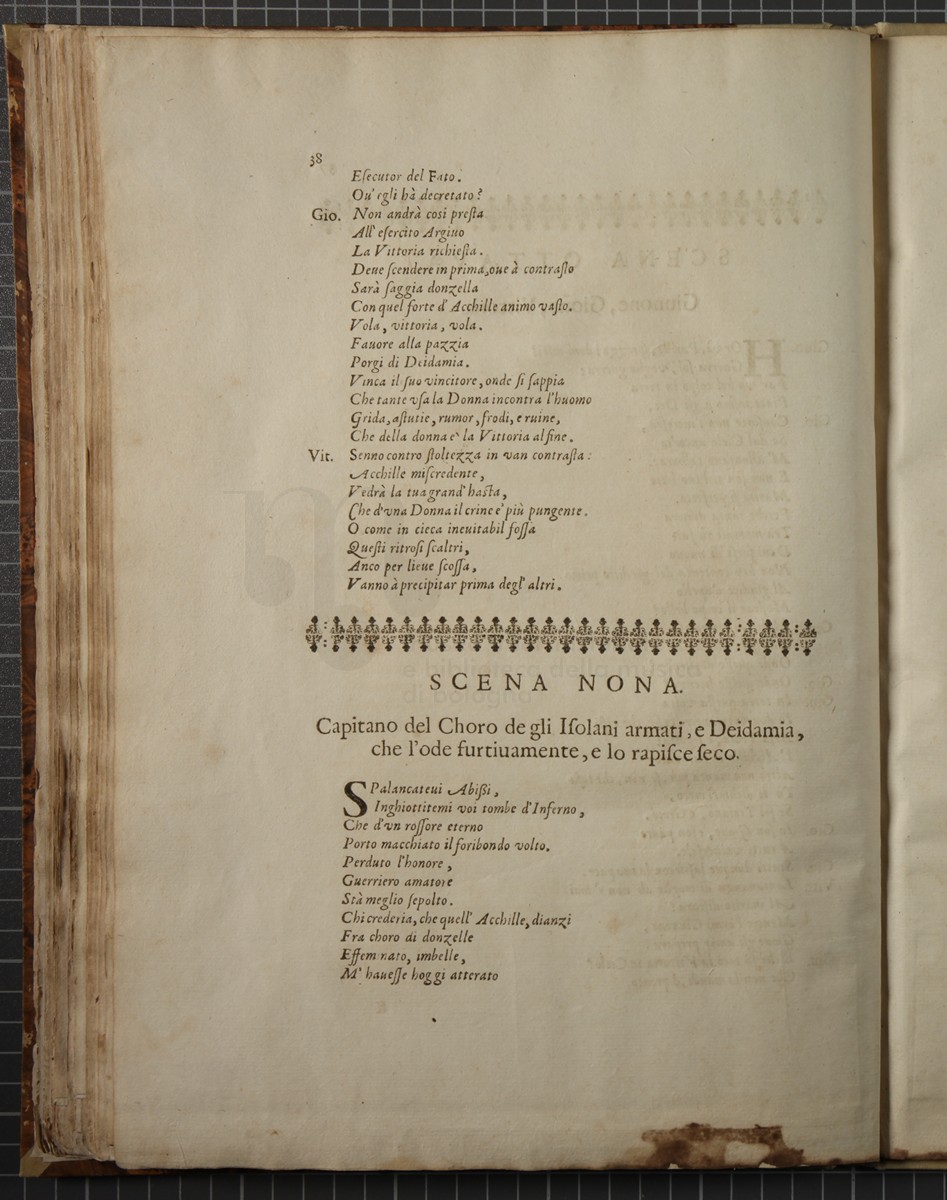 38
Eſecutor del Fato.
Ou' egli hà decretato?
Gio. Non andrà così preſta
All' eſercito Argiuo
La Vittoria richieſta.
Deue ſcendere in prima, oue à contraſto
Sarà ſaggia donzella
Con quel forte d' Acchille animo vaſto.
Vola, vittoria, vola.
Fauore alla pazzia
Porgi di Deidamia.
Vinca il ſuo vincitore, onde ſi ſappia
Che tante vſa la Donna incontra l'huomo
Grida, aſtutie, rumor, frodi, e ruine,
Che della donna e` la Vittoria alfine.
Vit. Senno contro ſtoltezza in van contraſta:
Acchille miſcredente,
Vedrà la tua grand' haſta,
Che d'vna Donna il crine e` più pungente.
O come in cieca ineuitabil foſſa
Queſti ritroſi ſcaltri,
Anco per lieue ſcoſſa,
Vanno à precipitar prima degl' altri.
SCENA NONA.
Capitano del Choro de gli Iſolani armati, e Deidamia,
che l'ode furtiuamente, e lo rapiſce ſeco.
SPalancateui Abiſſi,
Inghiottitemi voi tombe d'Inferno,
Che d'vn roſſore eterno
Porto macchiato il foribondo volto.
Perduto l'honore,
Guerriero amatore
Stà meglio ſepolto.
Chi crederia, che quell' Acchille, dianzi
Fra choro di donzelle
Effeminato, imbelle,
M' haueſſe hoggi atterato